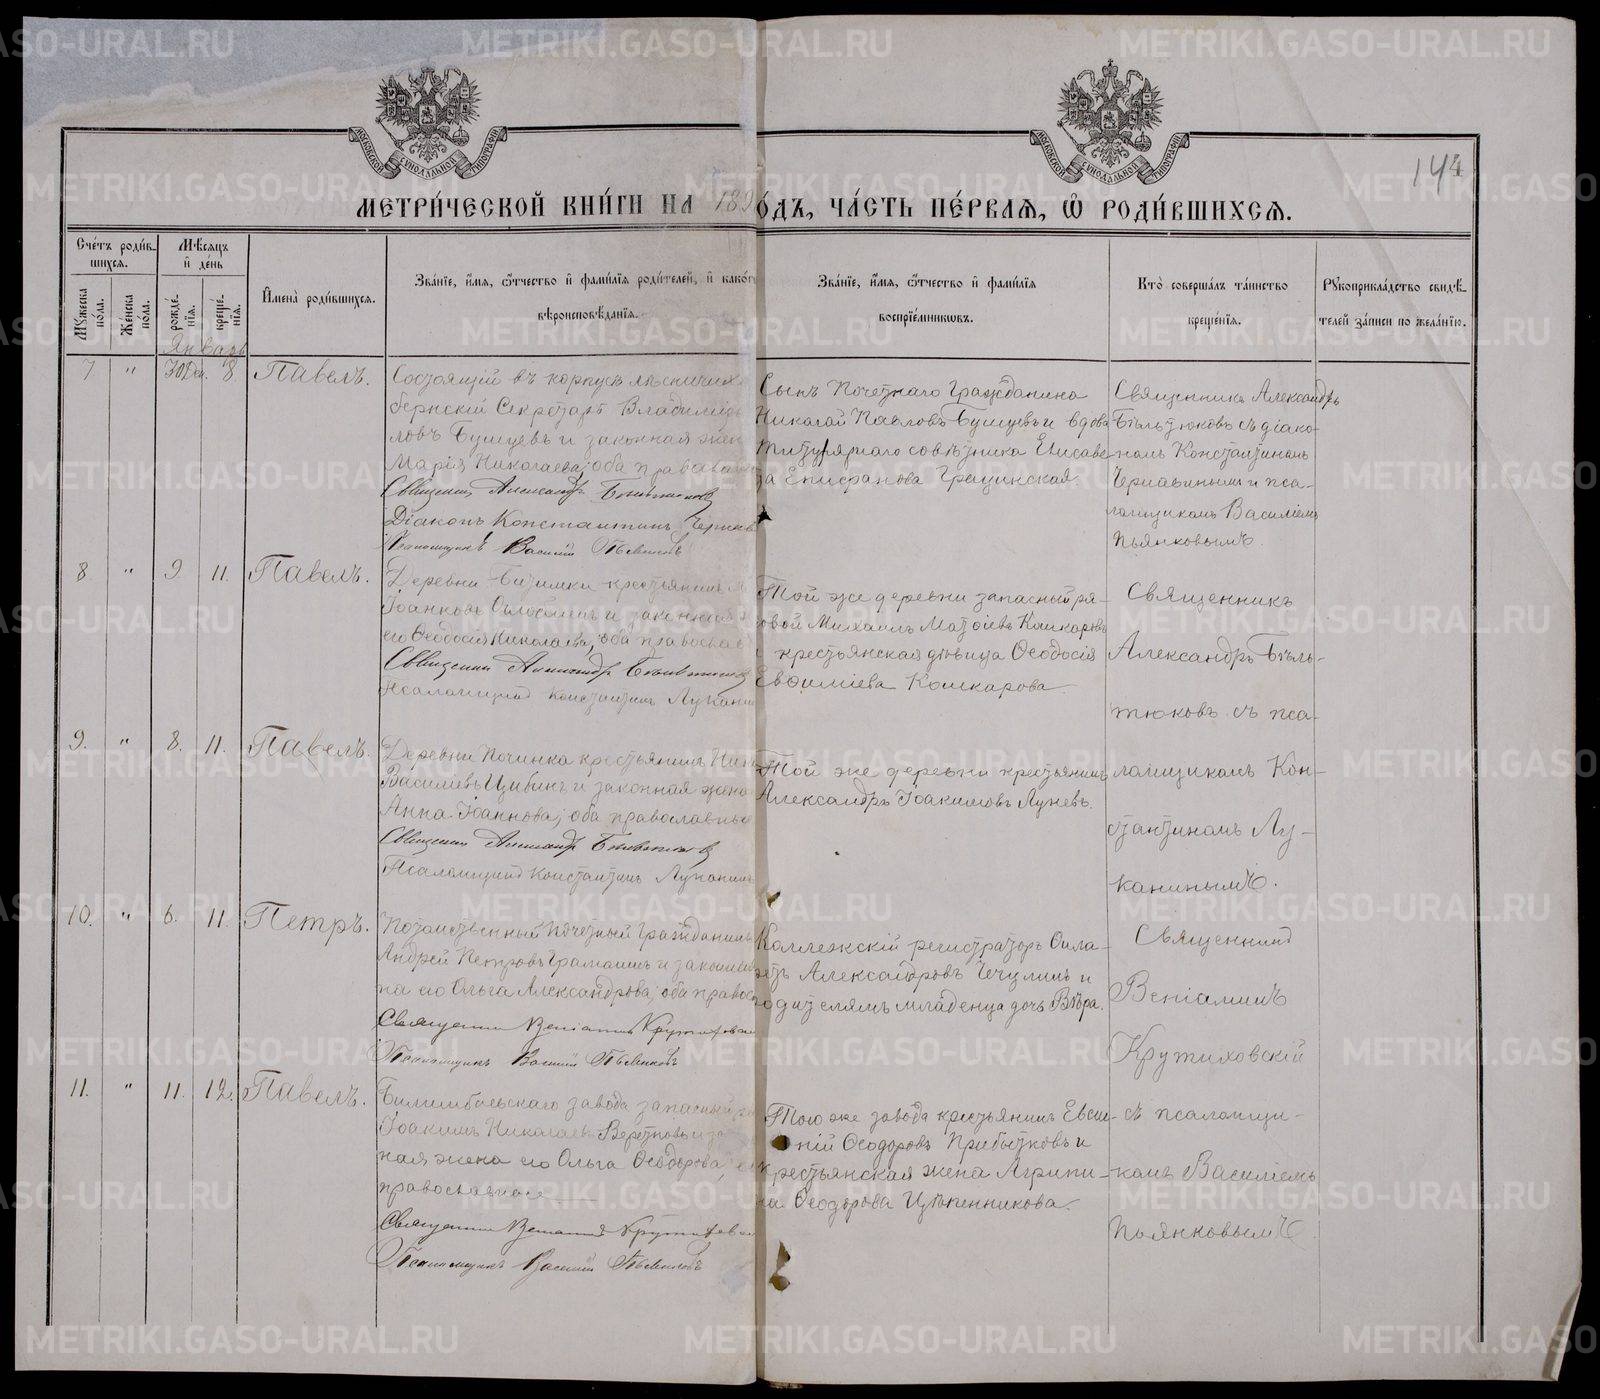 МЕТРИ́ЧЕСКОЙ КНИ́ГИ НА 189 ОДЪ, ЧА́СТЬ ПЕ́РВАЯ, Ѡ҆ РОДИ́ВШИХСЯ.
144
Сче́тъ роди́в-
шихся.
Му́жеска по́ла.
Же́нска по́ла.
Мѣ́сяцъ
и҆ де́нь
рожде́-
нїя.
креще́-
нїя.
Январь
И҆мена̀ роди́вшихся.
Зва́нїе, и҆́мя, ѻ҆́тчество и҆ фами́лїя роди́телей, и҆ како́гѡ
вѣроисповѣ́данїя.
Зва́нїе, и҆́мя, ѻ҆́тчество и҆ фами́лїя
воспрїе́мниковъ.
Кто̀ соверша́лъ та́инство
креще́нїя.
Рукоприкла́дство свидѣ́-
телей за́писи по жела́нїю.
7 " 30 Дек. 8 Павелъ.
Состоящій въ корпусѣ лѣсничих
бернскій Секретарь Владимір
ловъ Бушуевъ и законная жен
Марія Николаева, оба православн
Священникъ Александръ Бѣльтюковъ
Діаконъ Константинъ Черняв
Псаломщикъ Василій Пьянковъ
Сынъ Почетнаго Гражданина
Николай Павловъ Бушуевъ и вдова
титулярнаго совѣтника Елисаве
та Епифанова Грацинская.
Священникъ Александръ
Бѣльтюковъ съ діако-
номъ Константиномъ
Чернавинымъ и пса-
ломщикомъ Василіемъ
Пьянковымъ.
8 " 9 11. Павелъ.
Деревни Битимки крестьянинъ
его Ѳеодосія Николаева, оба православ
Священникъ Александръ Бѣльтюковъ
Псаломщикъ Константинъ Луканин
Той же деревни запасный ря-
овой Михаилъ Матѳіевъ Кошкаровъ
и крестьянская дѣвица Ѳеодосія
Евѳиміева Кошкарова.
Священникъ
Александръ Бѣль-
тюковъ съ пса-
ломщикомъ Кон-
стантиномъ Лу-
канинымъ.
9. " 8. 11. Павелъ.
Деревни Починка крестьянинъ
Василіевъ Цибинъ и законная жена
Анна Іоаннова, оба православные
Священникъ Александръ Бѣльтюковъ
Псаломщикъ Константинъ Луканинъ
Той же деревни крестьянинъ
Александръ Іоакимовъ Луневъ.
10. " 6. 11. Петръ.
Потомственный Почетный Гражданинъ
Андрей Петровъ Грамолинъ и законная
на его Ольга Александрова, оба правосл
Священникъ Веніаминъ Крутиховскій
Псаломщикъ Василій Пьянковъ
Коллежскій регистраторъ Фила-
етъ Александровъ Чечулинъ и
родителямъ младенца дочь Вѣра.
Священникъ
Веніаминъ
Крутиховскій
съ псаломщи-
комъ Василіемъ
Пьянковымъ.
11. " 11. 12. Павелъ.
Билимбаевскаго завода запасный ря
Іоакимъ Николаевъ Веретновъ и за
ная жена его Ольга Ѳеодорова,
православные
Священникъ Веніаминъ Крутиховскій
Псаломщикъ Василій Пьянковъ
Того же завода крестьянинъ Евсиг-
ній Ѳеодоровъ Прибытковъ и
крестьянская жена Агрипи-
на Ѳеодорова Цѣпенникова.